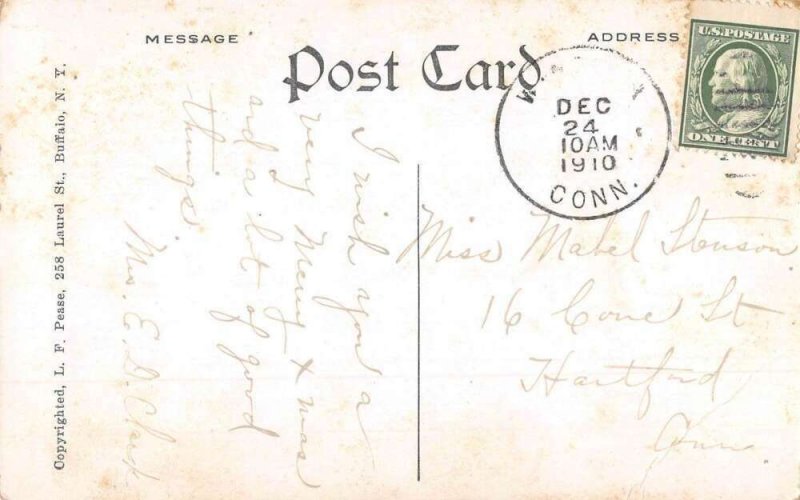 MESSAGE
ADDRESS
Post Card
U.S. POSTAGE
ONE CENT
DEC
24
10AM
1910
CONN.
I wish you a
very Merry Xmas
and a lot of good
things
Mrs. E. D. Clark
Miss Mabel Stenson
16 Cone St
Hartford
Conn.
Copyrighted, L. F. Pease, 258 Laurel St., Buffalo, N. Y.